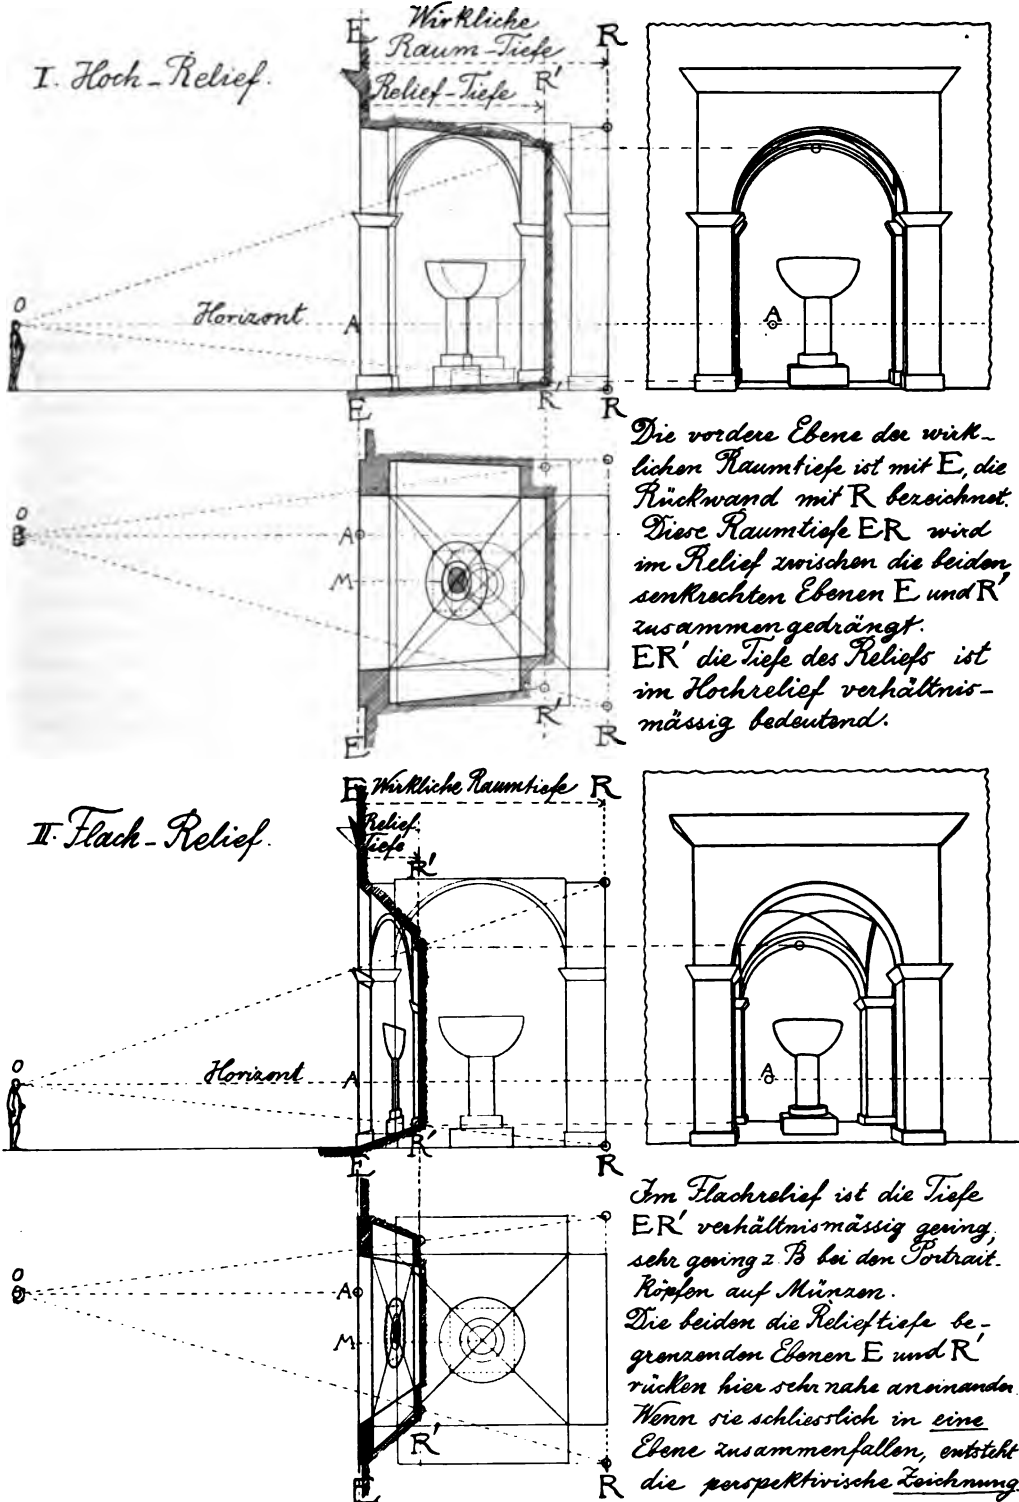 I. Hoch-Relief.
E
Wirkliche
Raum-Tiefe
R
Relief-Tiefe
R'
O
Horizont
A
A
E
R'
R
O
A
M
R'
E
R
Die vordere Ebene der wirk-
lichen Raumtiefe ist mit E, die
Rückwand mit R bezeichnet.
Diese Raumtiefe ER wird
im Relief zwischen die beiden
senkrechten Ebenen E und R'
zusammengedrängt.
ER' die Tiefe des Reliefs ist
im Hochrelief verhältnis-
mässig bedeutend.
II. Flach-Relief.
E
Wirkliche Raumtiefe
R
Relief
Tiefe
R'
O
Horizont
A
A
E
R'
R
O
A
M
R'
E
R
Im Flachrelief ist die Tiefe
ER' verhältnismässig gering,
sehr gering z B bei den Portrait-
Köpfen auf Münzen.
Die beiden die Relieftiefe be-
grenzenden Ebenen E und R'
rücken hier sehr nahe aneinander.
Wenn sie schliesslich in eine
Ebene zusammenfallen, entsteht
die perspektivische Zeichnung